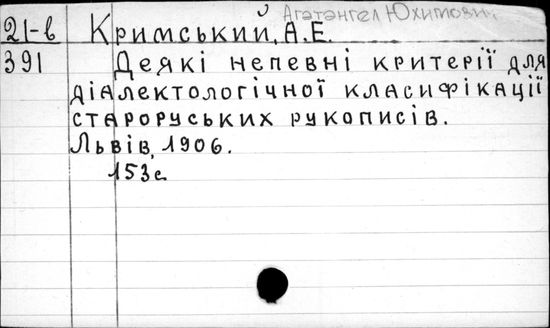 Агатангел Юхимович
21-в Кримський, А.Е.
391 Деякі непевні критерії для
діалектологічної класифікації
староруських рукописів.
Львів, 1906.
153с.